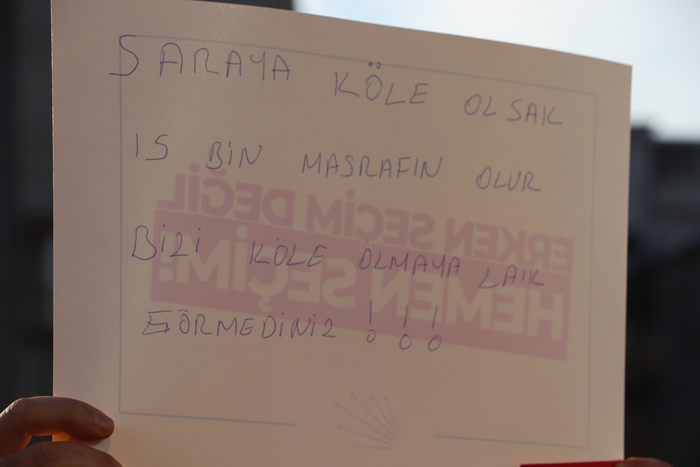 SARAYA KÖLE OLSAK
15 BİN MASRAFIN OLUR
BİZİ KÖLE OLMAYA LAİK
GÖRMEDİNİZ !!!
ERKEN SEÇİM DEĞİL
HEMEN SEÇİM!